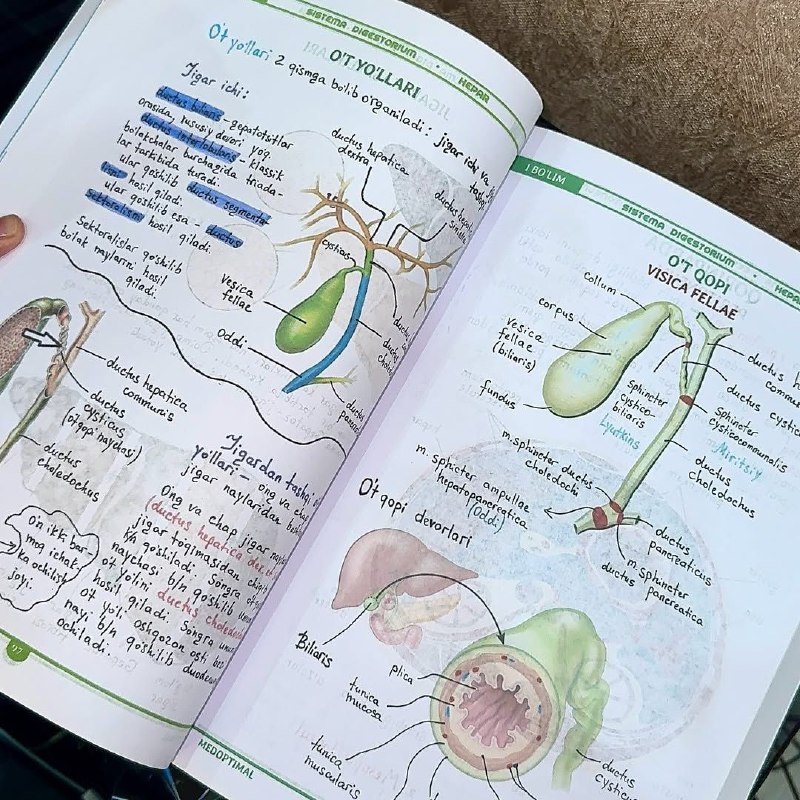 SISTEMA DIGESTORIUM • HEPAR
O'T YO'LLARI
O't yo'llari 2 qismga bo'lib o'rganiladi: jigar ichi va
Jigar ichi:
ductus biliaris - gepatotsitlar
orasida, xususiy devori yo'q.
ductus interlobularis - klassik
bo'lakchalar burchagida triada-
lar tarkibida turadi.
ular qo'shilib ductus segmenta-
hosil qiladi.
ular qo'shilib esa - ductus
sektoralisni hosil qiladi.
Sektoralislar qo'shilib
bo'lak naylarini hosil
qiladi.
ductus hepatica
dextra
cysticus
vesica
fellae
Oddi
ductus hepatica
communis
ductus
cysticus
(o't qopi naychasi)
ductus
choledochus
O'n ikki bar-
moq ichak-
ka ochilish
joyi.
Jigardan tashqi
yo'llari - o'ng va chap
jigar naylaridan
O'ng va chap jigar
(ductus hepatica
jigar to'qimasidan chiqib
qo'shiladi. So'ngra
naychasi b/n qo'shilib
o't yo'lini ductus choledochus
hosil qiladi. So'ngra
o't yo'li oshqozon osti
nayi b/n qo'shilib
ochiladi.
97
MEDOPTIMAL
I BO'LIM
SISTEMA DIGESTORIUM • HEPAR
O'T QOPI
VISICA FELLAE
collum
corpus
vesica
fellae
(biliaris)
fundus
sphincter
cystico-
biliaris
Lyutkins
ductus
ductus
sphincter
cysticocommunalis
Miritsiy
ductus
choledochus
m.sphincter ductus
choledochi
m. sphicter ampullae
hepatopancreatica
(Oddi)
ductus
pancreaticus
m. sphincter
ductus pancreatica
O't qopi devorlari
Biliaris
plica
tunica
mucosa
tunica
muscularis
ductus